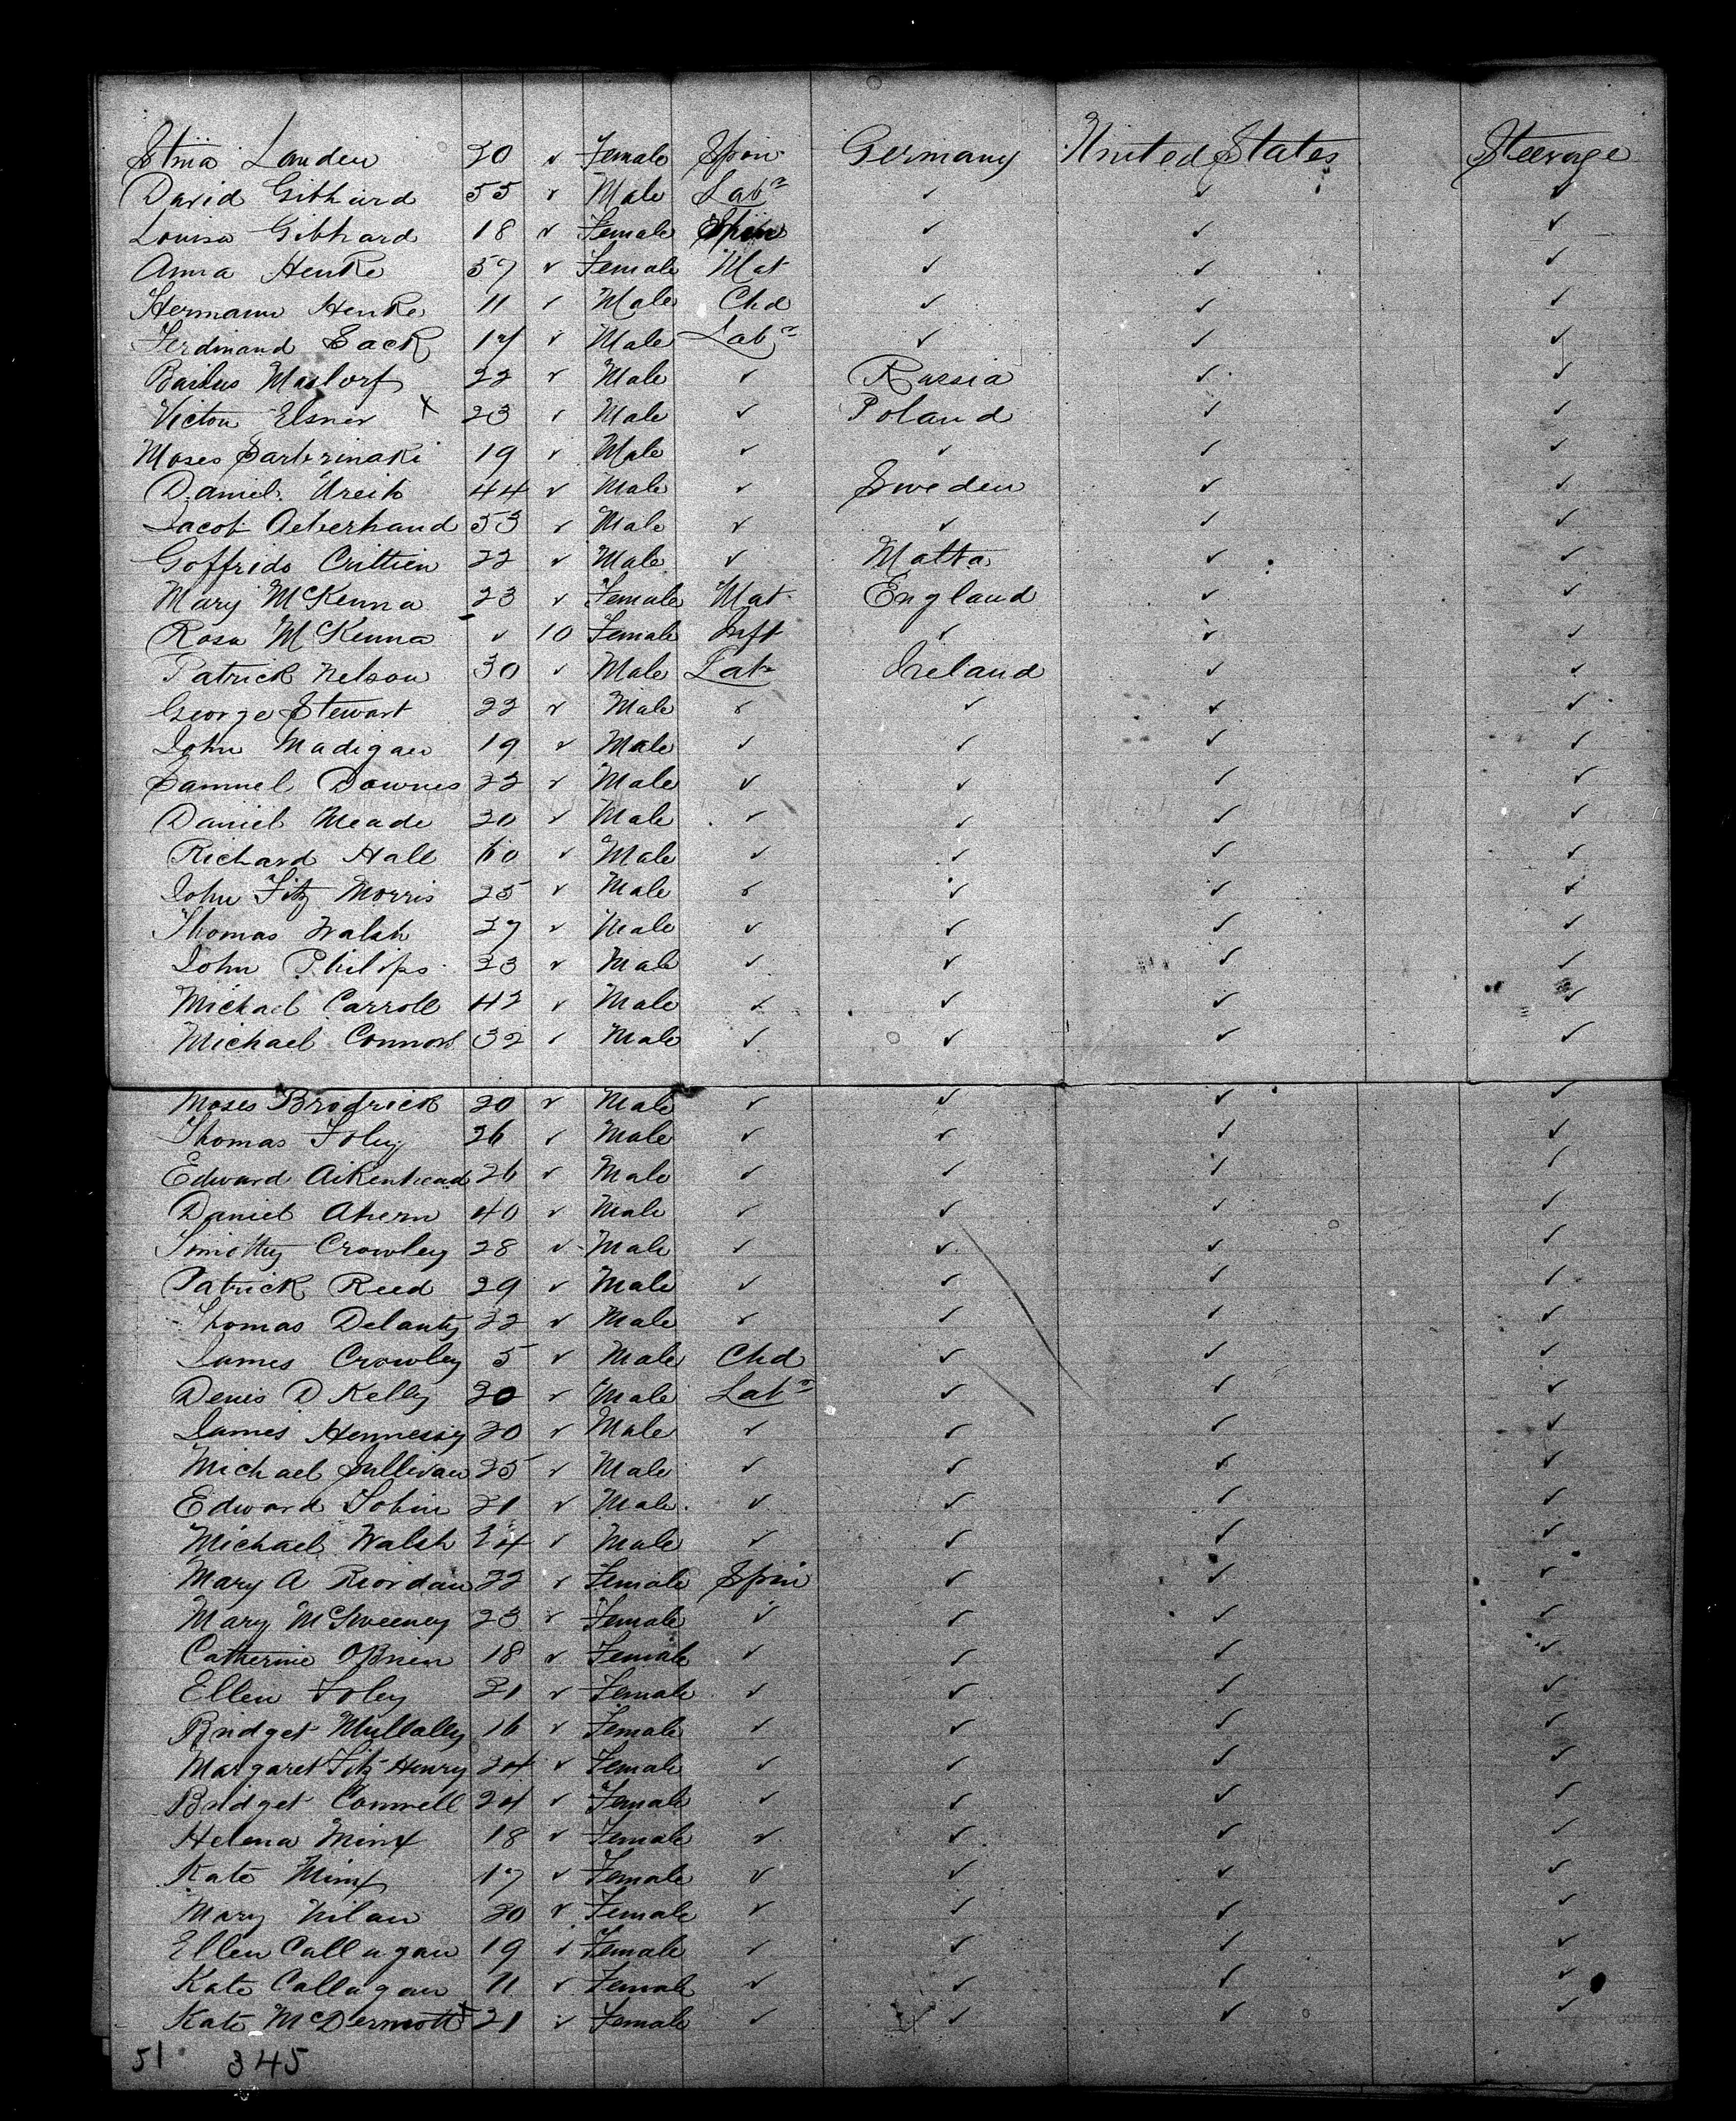 Stina Landen 20 ✓ Female Spin Germany United States Steerage
David Gibhard 55 ✓ Male Labr ✓ ✓ ✓
Louisa Gibhard 18 ✓ Female Spin ✓ ✓ ✓
Anna Henke 57 ✓ Female Mat ✓ ✓ ✓
Hermann Henke 11 ✓ Male Chd ✓ ✓ ✓
Ferdinand Sack 17 ✓ Male Labr ✓ ✓ ✓
Mastorf 22 ✓ Male ✓ Russia ✓ ✓
Victor Elsner x 23 ✓ Male ✓ Poland ✓ ✓
Moses 19 ✓ Male ✓ ✓ ✓ ✓
Daniel 44 ✓ Male ✓ Sweden ✓ ✓
Jacob 53 ✓ Male ✓ ✓ ✓ ✓
Goffrido 22 ✓ Male ✓ Malta ✓ ✓
Mary McKenna 23 ✓ Female Mat England ✓ ✓
Rosa McKenna ✓ 10 Female Inft ✓ ✓ ✓
Patrick Nelson 30 ✓ Male Labr Ireland ✓ ✓
George Stewart 22 ✓ Male ✓ ✓ ✓ ✓
John Madigan 19 ✓ Male ✓ ✓ ✓ ✓
Samuel Downes 22 ✓ Male ✓ ✓ ✓ ✓
Daniel Meade 20 ✓ Male ✓ ✓ ✓ ✓
Richard Hall 60 ✓ Male ✓ ✓ ✓ ✓
John Fitz Morris 25 ✓ Male ✓ ✓ ✓ ✓
Thomas Walsh 27 ✓ Male ✓ ✓ ✓ ✓
John Philips 23 ✓ Male ✓ ✓ ✓ ✓
Michael Carroll 42 ✓ Male ✓ ✓ ✓ ✓
Michael Connors 32 ✓ Male ✓ ✓ ✓ ✓
Moses Brodrick 20 ✓ Male ✓ ✓ ✓ ✓
Thomas Foley 26 ✓ Male ✓ ✓ ✓ ✓
Edward Aikenhead 26 ✓ Male ✓ ✓ ✓ ✓
Daniel Ahern 40 ✓ Male ✓ ✓ ✓ ✓
Timothy Crowley 28 ✓ Male ✓ ✓ ✓ ✓
Patrick Reed 29 ✓ Male ✓ ✓ ✓ ✓
Thomas Delanty 22 ✓ Male ✓ ✓ ✓ ✓
James Crowley 5 ✓ Male Chd ✓ ✓ ✓
Denis D Kelly 20 ✓ Male Labr ✓ ✓ ✓
James Hennessy 20 ✓ Male ✓ ✓ ✓ ✓
Michael Sullivan 25 ✓ Male ✓ ✓ ✓ ✓
Edward Tobin 21 ✓ Male ✓ ✓ ✓ ✓
Michael Walsh 24 ✓ Male ✓ ✓ ✓ ✓
Mary A Riordan 22 ✓ Female Spin ✓ ✓ ✓
Mary McSweeney 23 ✓ Female ✓ ✓ ✓ ✓
Catherine OBrien 18 ✓ Female ✓ ✓ ✓ ✓
Ellen Foley 21 ✓ Female ✓ ✓ ✓ ✓
Bridget Mullally 16 ✓ Female ✓ ✓ ✓ ✓
Margaret Fitz Henry 24 ✓ Female ✓ ✓ ✓ ✓
Bridget Connell 24 ✓ Female ✓ ✓ ✓ ✓
Helena 18 ✓ Female ✓ ✓ ✓ ✓
Kate 17 ✓ Female ✓ ✓ ✓ ✓
Mary Nilan 20 ✓ Female ✓ ✓ ✓ ✓
Ellen Callagan 19 ✓ Female ✓ ✓ ✓ ✓
Kate Callagan 11 ✓ Female ✓ ✓ ✓ ✓
Kate McDermott x 21 ✓ Female ✓ ✓ ✓ ✓
51 345